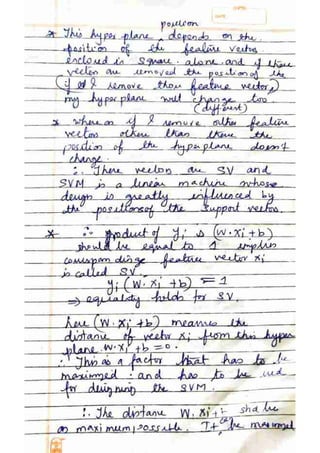 position
* This hyper plane depends on the
position of the feature vectors
enclosed in square alone and if these
vectors are removed the position of the
(if I remove those feature vectors,
my hyperplane will change too
(different)
* where as if I remove other feature
vectors other than these the
position of the hyperplane doesn't
change.
∴ These vectors are SV and
SVM is a linear machine whose
design is greatly influenced by
the positions of the support vectors.
* ∴ Product of yi is (W.xi+b)
should be equal to 1 implies
corresponding feature vector xi
is called SV.
yi (W.xi +b) = 1
⇒ equality holds for SV.
here (W.xi+b) means the
distance of vector xi from this hyper
plane W.xi+b=0.
∴ This is a factor that has to be
maximized and has to be used
for designing the SVM.
∴ The distance W.xi+b sha be
as maximum possible. It be maximized